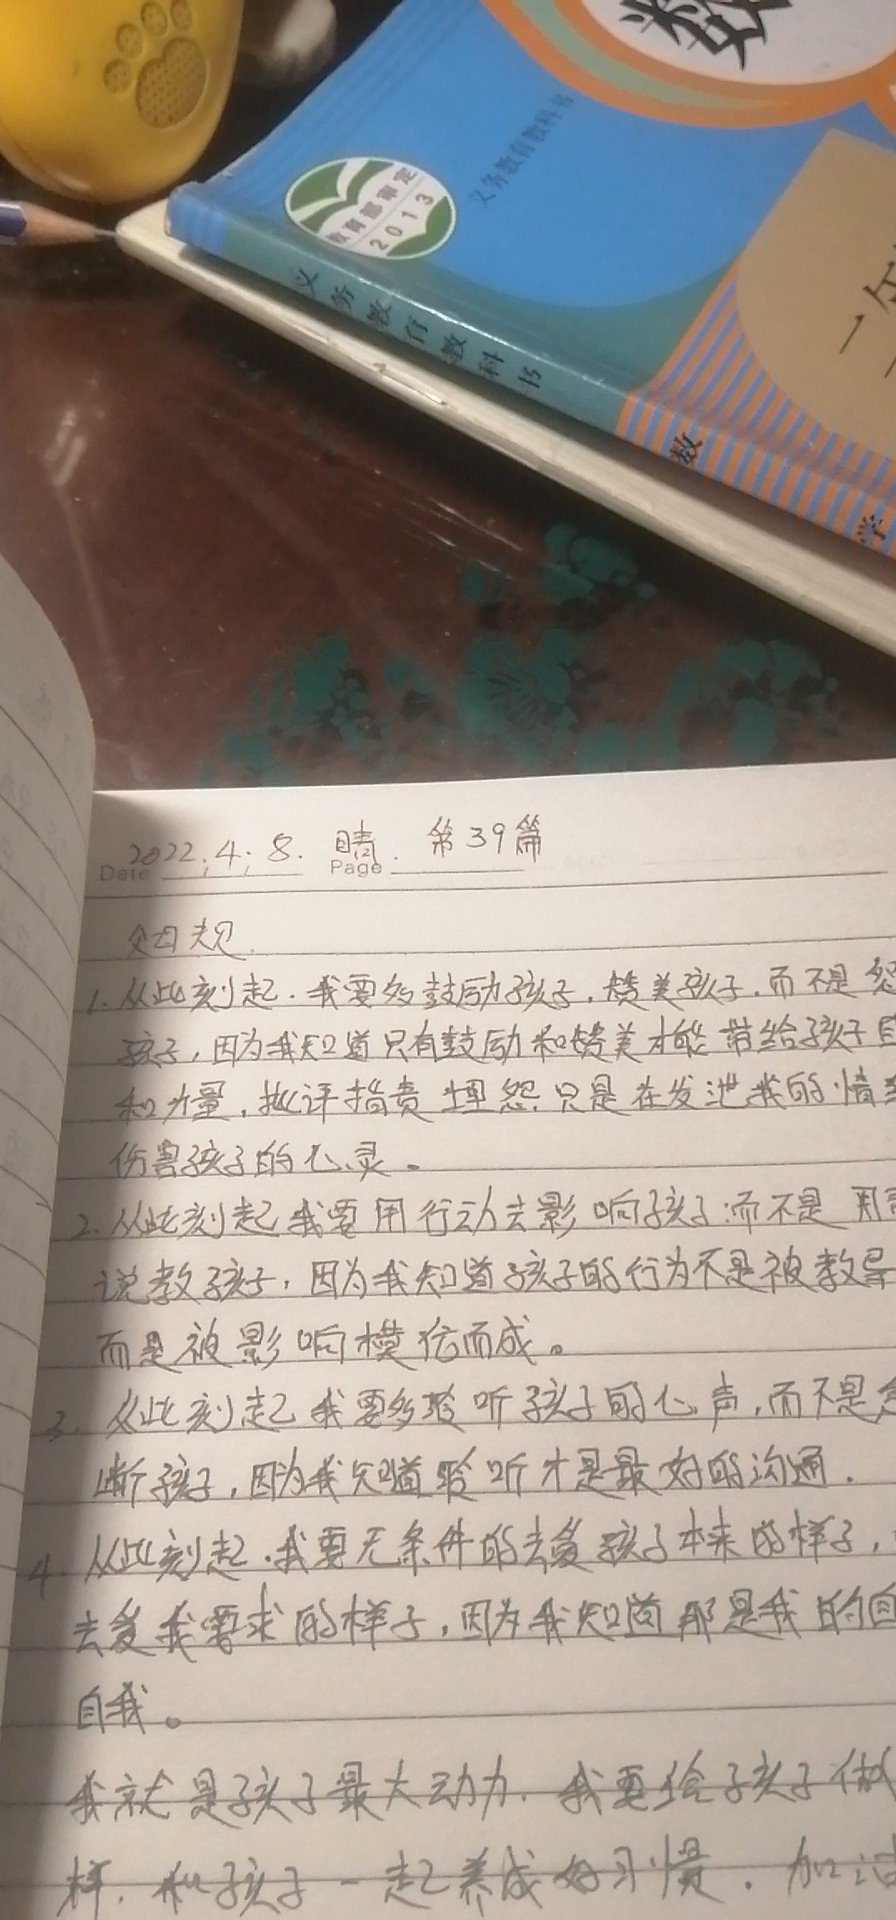 数
义务教育教科书
教育部审定
2013
义务教育教科书
数学
一年
2022.4.8. 晴. 第39篇
Date
Page
父母规.
1. 从此刻起.我要多鼓励孩子,赞美孩子.而不是
孩子,因为我知道只有鼓励和赞美才能带给孩子自
和力量,批评指责埋怨只是在发泄我的情
伤害孩子的心灵。
2. 从此刻起我要用行动去影响孩子.而不是用
说教孩子,因为我知道孩子的行为不是被教导
而是被影响模仿而成。
3. 从此刻起我要多聆听孩子的心声,而不是
断孩子,因为我知道聆听才是最好的沟通.
4. 从此刻起.我要无条件的去爱孩子本来的样子,
去爱我要求的样子,因为我知道那是我的自
自我。
我就是孩子最大动力.我要给孩子做
样.和孩子一起养成好习惯.加油